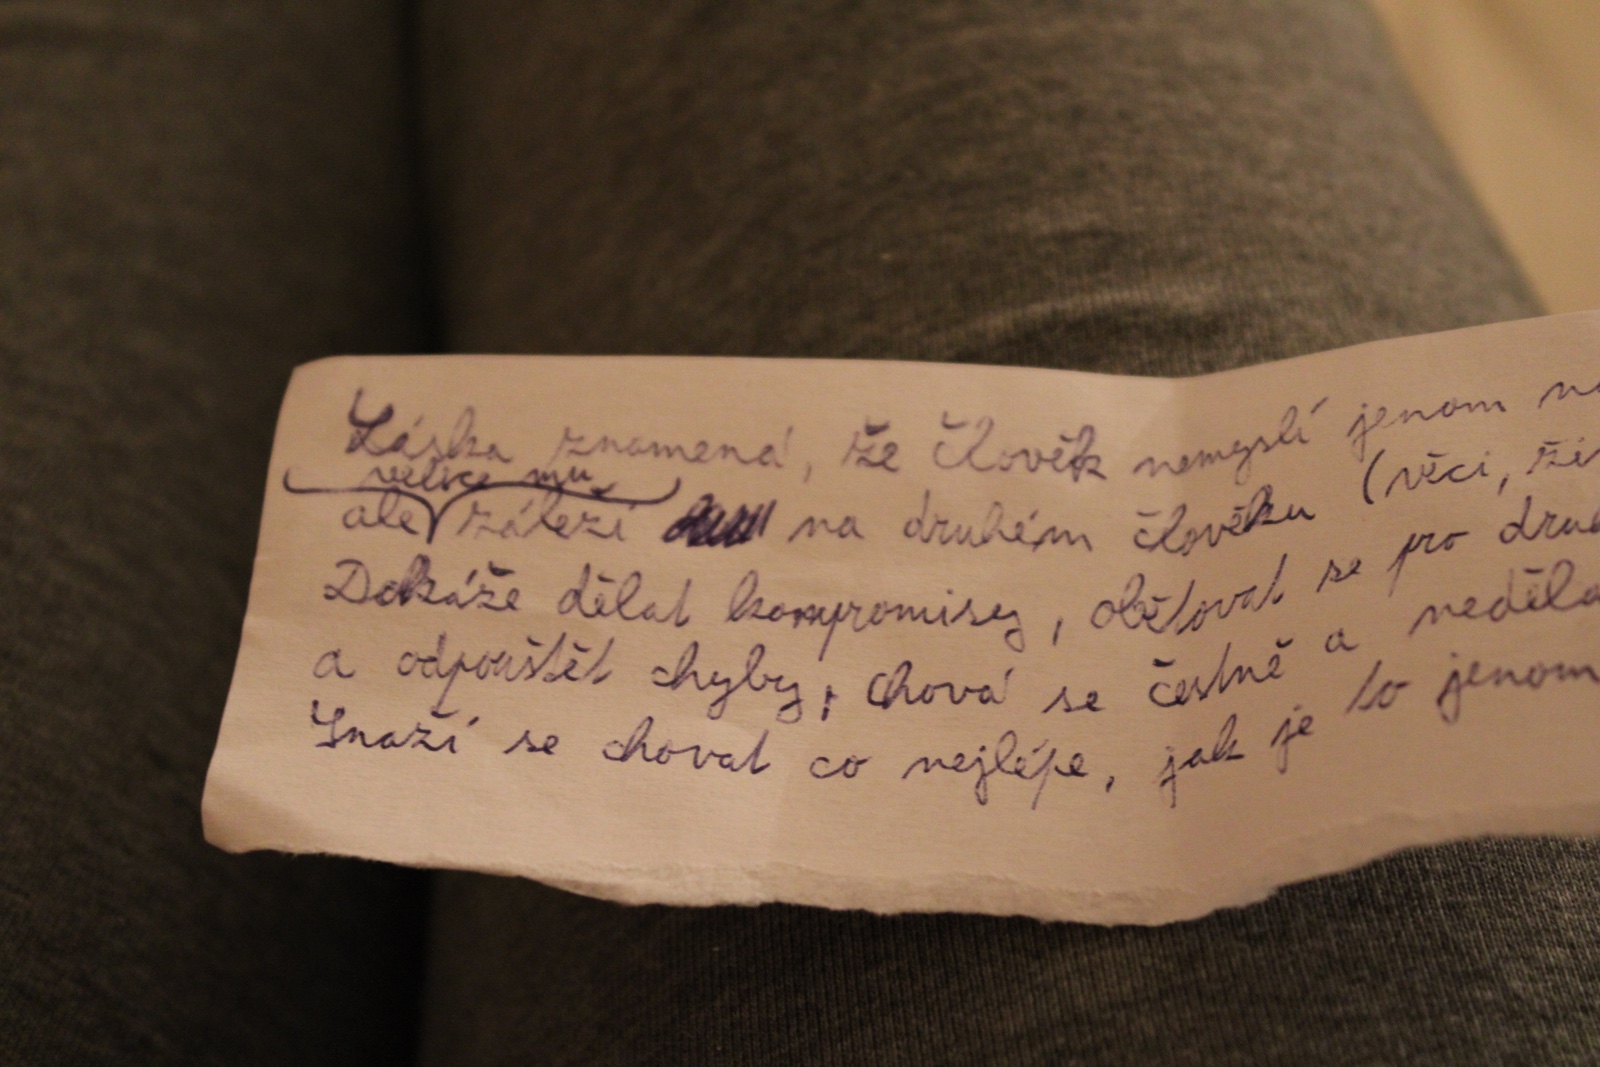 Láska znamená, že člověk nemyslí jenom
velice mu
ale záleží na druhém člověku (věci,
Dokáže dělat kompromisy, obětovat se pro
a odpouštět chyby, chová se čestně a
Snaží se chovat co nejlépe, jak je to jenom